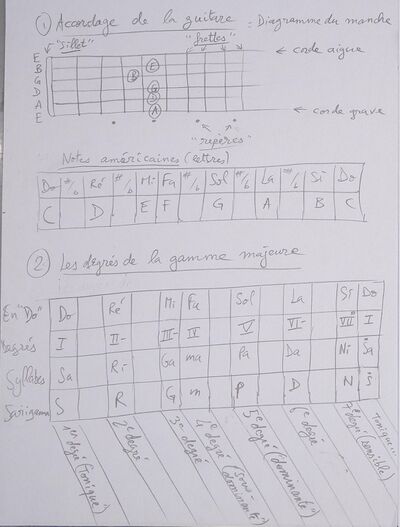 ① Accordage de la guitare = Diagramme du manche
"Sillet" "frettes"
E ← corde aigüe
B E
G B
D G
A D
E A ← corde grave
"repères"
Notes américaines (lettres)
Do #/b Ré #/b Mi Fa #/b Sol #/b La #/b Si Do
C D E F G A B C
② Les degrés de la gamme majeure
En "Do" Do Ré Mi Fa Sol La Si Do
Degrés I II- III- IV V VI- VII I
Syllabes Sa Ri Ga ma Pa Da Ni Sa
Sarigama S R G m P D N S
1er degré (tonique)
2e degré
3e degré
4e degré (sous-dominante)
5e degré (dominante)
6e degré
7e degré (sensible)
Tonique...